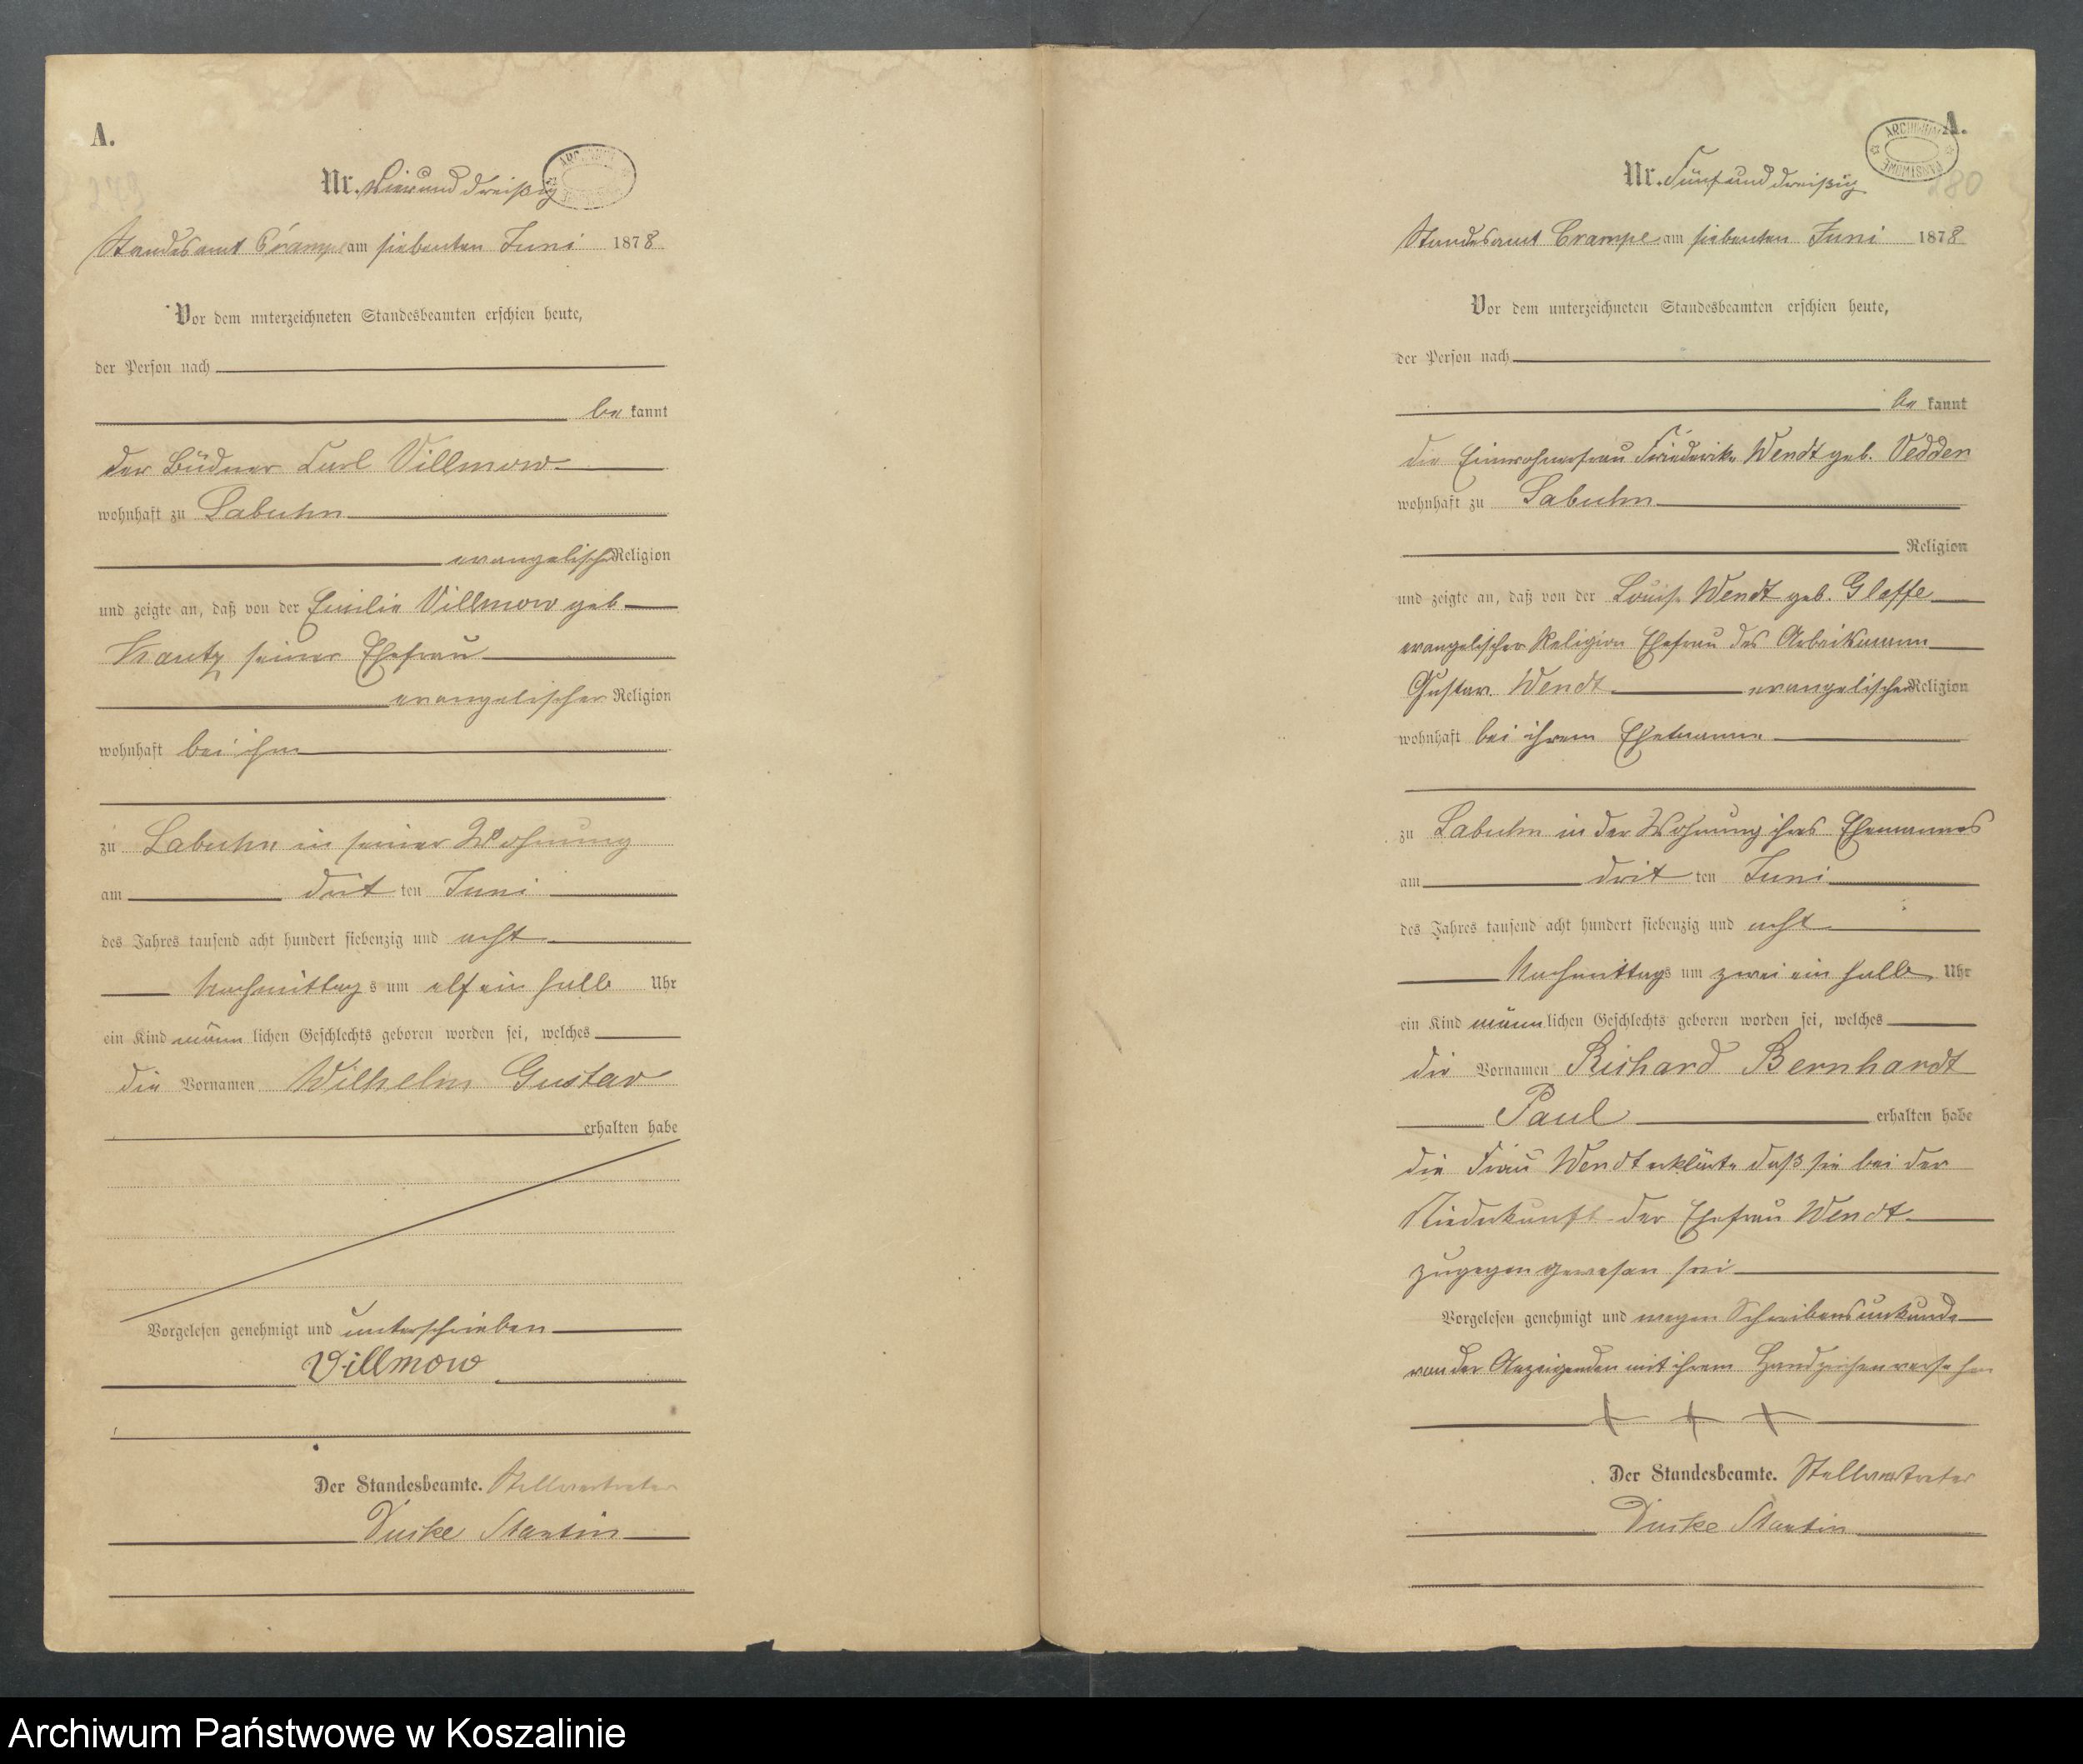 A.
279
Nr. Vierunddreißig
Standesamt Crampe am siebenten Juni 1878
Vor dem unterzeichneten Standesbeamten erschien heute,
der Person nach
be kannt
der Büdner Carl Villmow
wohnhaft zu Labuhn
evangelisch Religion
und zeigte an, daß von der Emilie Villmow geb
Kautz seiner Ehefrau
evangelischer Religion
wohnhaft bei ihm
zu Labuhn in seiner Wohnung
am drit ten Juni
des Jahres tausend acht hundert siebenzig und acht
Nachmittag s um elf ein halb Uhr
ein Kind männ lichen Geschlechts geboren worden sei, welches
die Vornamen Wilhelm Gustav
erhalten habe
Vorgelesen genehmigt und unterschrieben
Villmow
Der Standesbeamte. Stellvertreter
Martin
A.
ARCHIWUM PAŃSTWOWE
280
Nr. Fünfunddreißig
Standesamt Crampe am siebenten Juni 1878
Vor dem unterzeichneten Standesbeamten erschien heute,
der Person nach
be kannt
die Einwohnerfrau Friederike Wendt geb. Vedder
wohnhaft zu Labuhn
Religion
und zeigte an, daß von der Louise Wendt geb. Glaffe
evangelischer Religion Ehefrau des Arbeitsmann
Gustav Wendt evangelischer Religion
wohnhaft bei ihrem Ehemanne
zu Labuhn in der Wohnung ihres Ehemannes
am drit ten Juni
des Jahres tausend acht hundert siebenzig und acht
Nachmittags um zwei ein halb Uhr
ein Kind männ lichen Geschlechts geboren worden sei, welches
die Vornamen Richard Bernhardt
Paul erhalten habe
die Frau Wendt erklärte daß sie bei der
Niederkunft der Ehefrau Wendt
zugegen gewesen sei
Vorgelesen genehmigt und wegen Schreibensunkunde
von der Anzeigenden mit ihrem Handzeichen versehen
+ + +
Der Standesbeamte. Stellvertreter
Martin
Archiwum Państwowe w Koszalinie